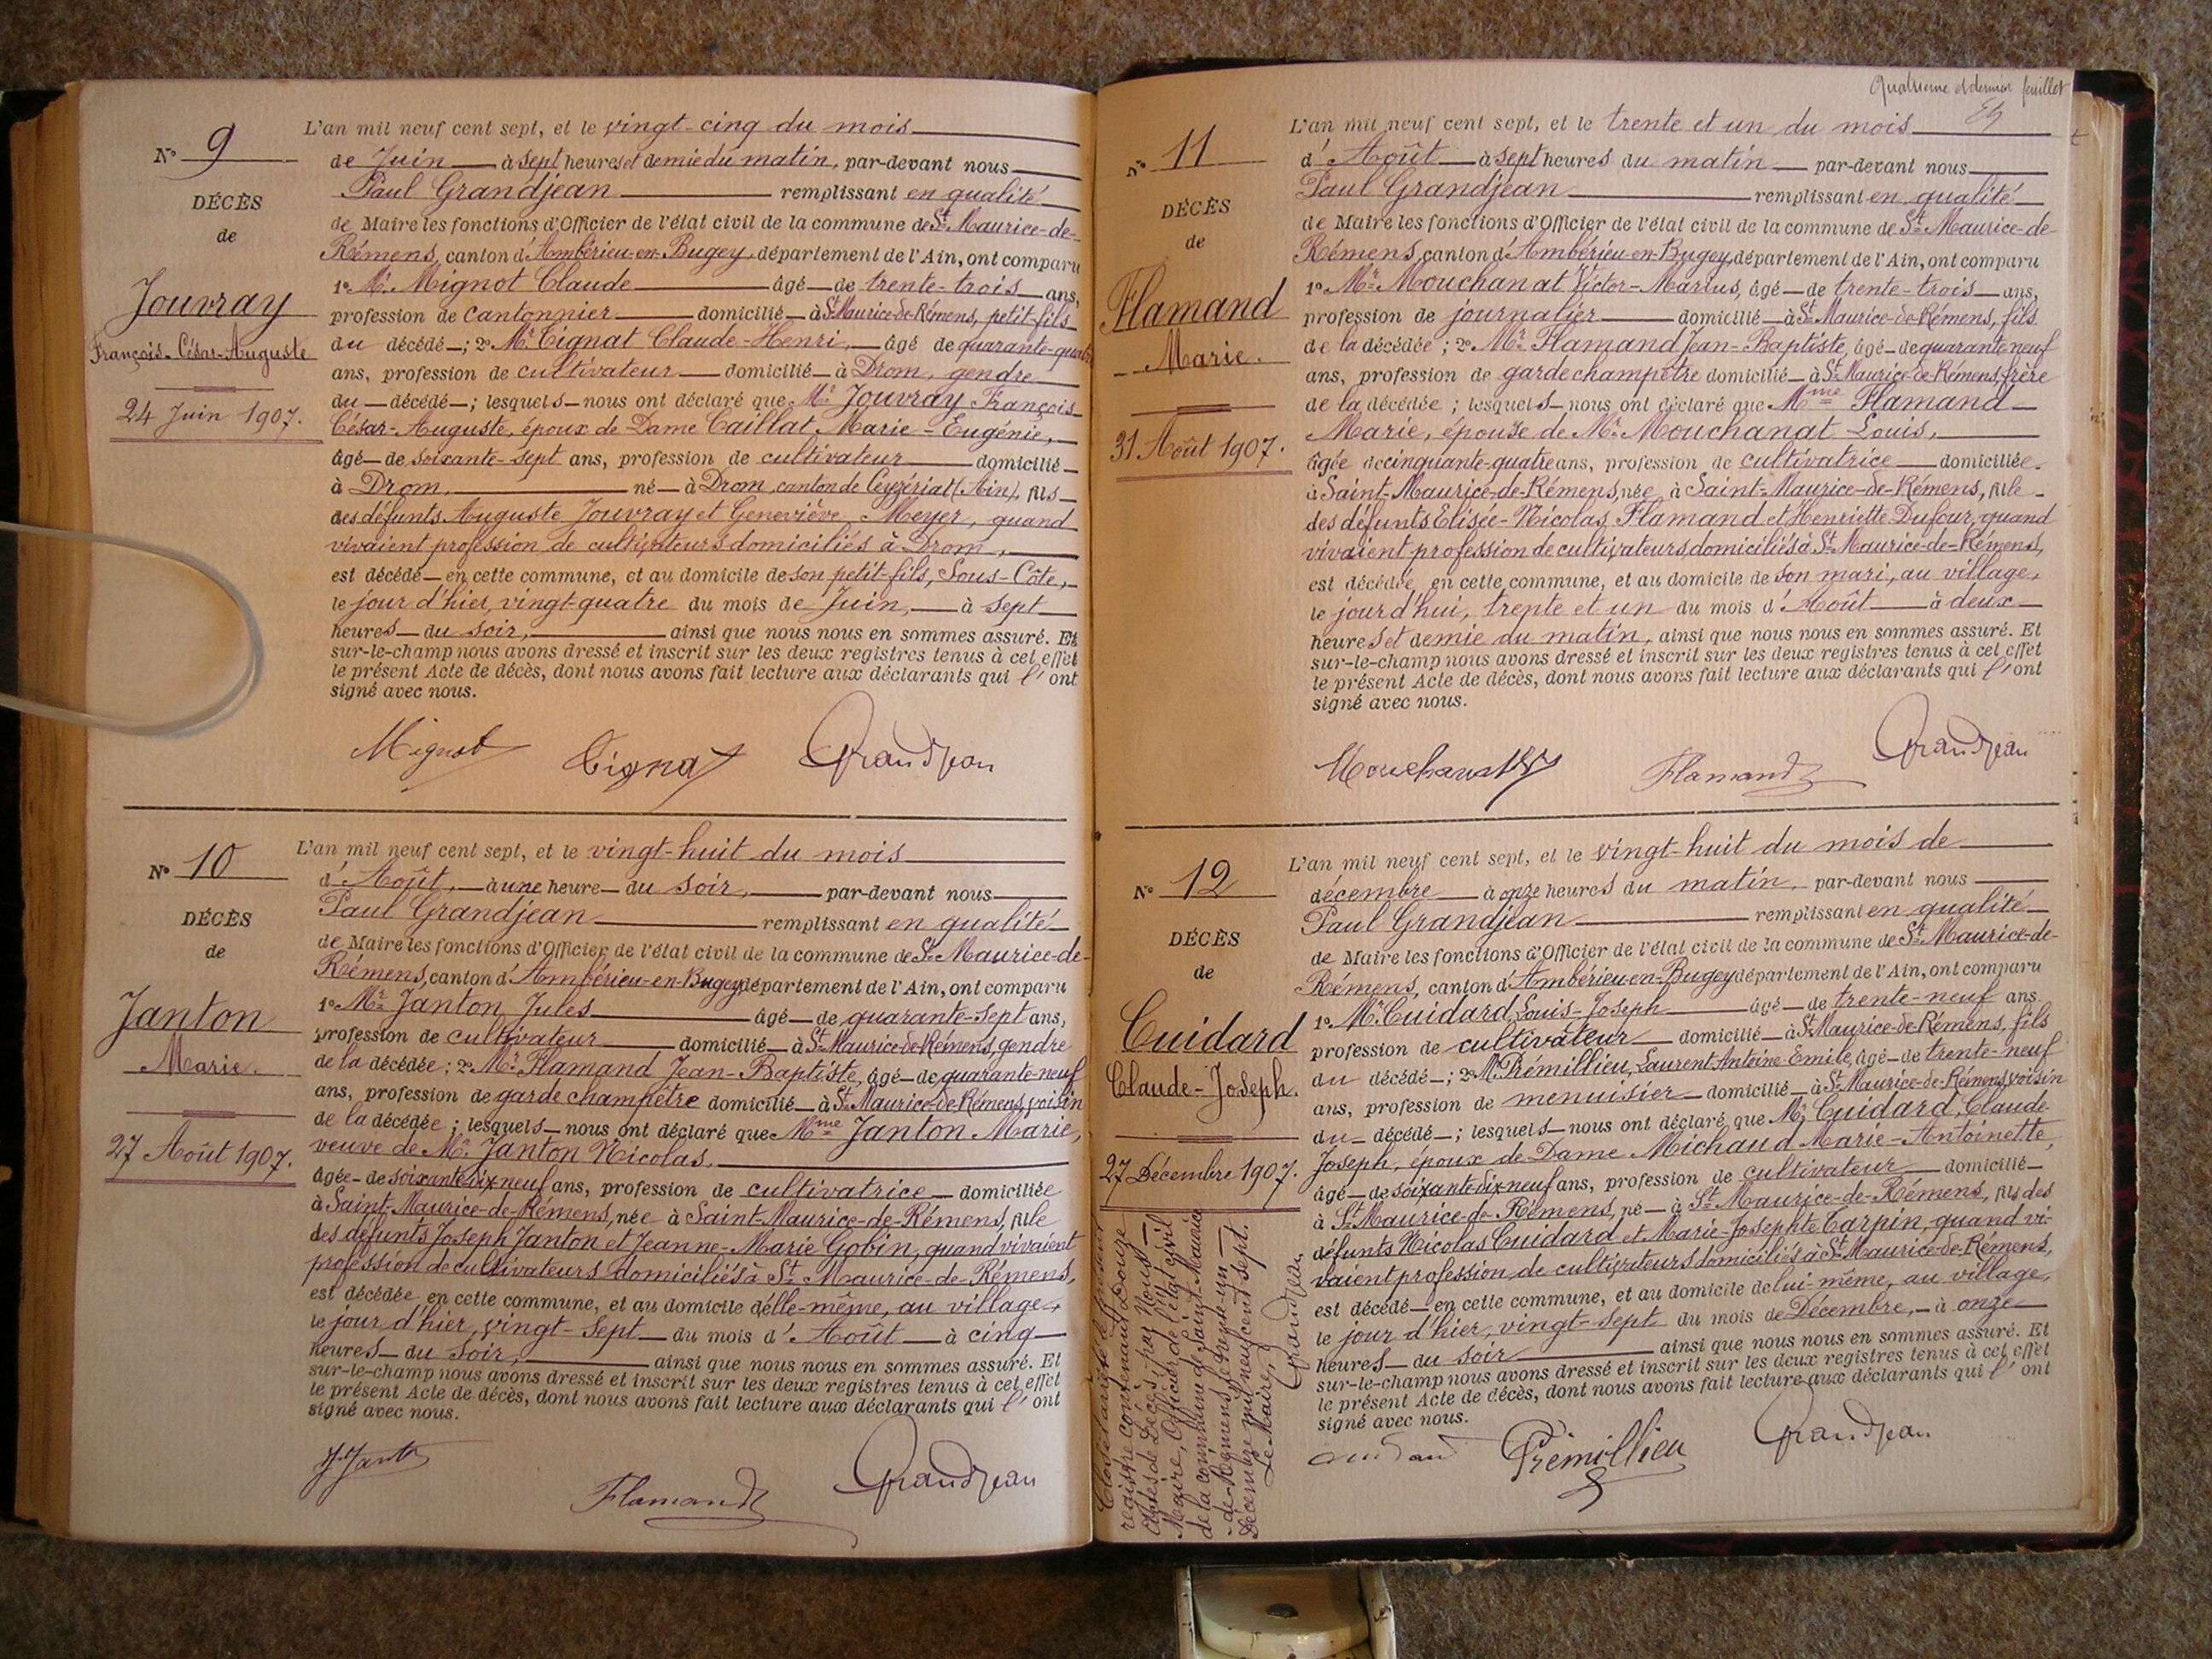 N° 9
DÉCÈS
de
Jouvray
François-César-Auguste
24 Juin 1907.
L'an mil neuf cent sept, et le vingt-cinq du mois
de Juin à sept heures et demie du matin, par-devant nous
Paul Grandjean remplissant en qualité
de Maire les fonctions d'Officier de l'état civil de la commune de St Maurice-de-
Rémens, canton d'Ambérieu-en-Bugey, département de l'Ain, ont comparu
1° Mr. Mignot Claude âgé de trente-trois ans,
profession de cantonnier domicilié à St Maurice-de-Rémens, petit-fils
du décédé ; 2° Mr. Tignat Claude-Henri, âgé de quarante-quatre
ans, profession de cultivateur domicilié à Drom, gendre
du décédé ; lesquels nous ont déclaré que Mr. Jouvray François-
César-Auguste, époux de Dame Caillat Marie-Eugénie,
âgé de soixante-sept ans, profession de cultivateur domicilié
à Drom, né à Drom, canton de Ceyzériat (Ain), fils
des défunts Auguste Jouvray et Geneviève Meyer, quand
vivaient profession de cultivateurs domiciliés à Drom,
est décédé en cette commune, et au domicile de son petit-fils, Sous-Côte,
le jour d'hier, vingt-quatre du mois de Juin, à sept
heures du soir, ainsi que nous nous en sommes assuré. Et
sur-le-champ nous avons dressé et inscrit sur les deux registres tenus à cet effet
le présent Acte de décès, dont nous avons fait lecture aux déclarants qui l'ont
signé avec nous.
Mignot Tignat Grandjean
N° 10
DÉCÈS
de
Janton
Marie.
27 Août 1907.
L'an mil neuf cent sept, et le vingt-huit du mois
d'Août, à une heure du soir, par-devant nous
Paul Grandjean remplissant en qualité
de Maire les fonctions d'Officier de l'état civil de la commune de St Maurice-de-
Rémens, canton d'Ambérieu-en-Bugey département de l'Ain, ont comparu
1° Mr. Janton Jules âgé de quarante-sept ans,
profession de cultivateur domicilié à St Maurice-de-Rémens, gendre
de la décédée ; 2° Mr. Flamand Jean-Baptiste, âgé de quarante-neuf
ans, profession de garde champêtre domicilié à St Maurice-de-Rémens, voisin
de la décédée ; lesquels nous ont déclaré que Mme Janton Marie,
veuve de Mr. Janton Nicolas,
âgée de soixante-dix-neuf ans, profession de cultivatrice domiciliée
à Saint-Maurice-de-Rémens, née à Saint-Maurice-de-Rémens, fille
des défunts Joseph Janton et Jeanne-Marie Gobin, quand vivaient
profession de cultivateurs domiciliés à St Maurice-de-Rémens,
est décédée en cette commune, et au domicile d'elle-même, au village,
le jour d'hier, vingt-sept du mois d'Août à cinq
heures du soir, ainsi que nous nous en sommes assuré. Et
sur-le-champ nous avons dressé et inscrit sur les deux registres tenus à cet effet
le présent Acte de décès, dont nous avons fait lecture aux déclarants qui l'ont
signé avec nous.
J. Janton Flamand Grandjean
Quatrième et dernier feuillet
N° 11
DÉCÈS
de
Flamand
Marie.
31 Août 1907.
L'an mil neuf cent sept, et le trente et un du mois
d'Août à sept heures du matin par-devant nous
Paul Grandjean remplissant en qualité
de Maire les fonctions d'Officier de l'état civil de la commune de St Maurice-de-
Rémens, canton d'Ambérieu-en-Bugey, département de l'Ain, ont comparu
1° Mr. Mouchanat Victor-Marius, âgé de trente-trois ans,
profession de journalier domicilié à St Maurice-de-Rémens, fils
de la décédée ; 2° Mr. Flamand Jean-Baptiste, âgé de quarante neuf
ans, profession de garde champêtre domicilié à St Maurice-de-Rémens, frère
de la décédée ; lesquels nous ont déclaré que Mme Flamand
Marie, épouse de Mr. Mouchanat Louis,
âgée de cinquante-quatre ans, profession de cultivatrice domiciliée
à Saint-Maurice-de-Rémens, née à Saint-Maurice-de-Rémens, fille
des défunts Elisée-Nicolas Flamand et Henriette Dufour, quand
vivaient profession de cultivateurs domiciliés à St Maurice-de-Rémens,
est décédée en cette commune, et au domicile de son mari, au village,
le jour d'hui, trente et un du mois d'Août à deux
heures et demie du matin, ainsi que nous nous en sommes assuré. Et
sur-le-champ nous avons dressé et inscrit sur les deux registres tenus à cet effet
le présent Acte de décès, dont nous avons fait lecture aux déclarants qui l'ont
signé avec nous.
Mouchanat Flamand Grandjean
N° 12
DÉCÈS
de
Cuidard
Claude-Joseph.
27 Décembre 1907.
L'an mil neuf cent sept, et le vingt-huit du mois de
décembre à onze heures du matin, par-devant nous
Paul Grandjean remplissant en qualité
de Maire les fonctions d'Officier de l'état civil de la commune de St Maurice-de-
Rémens, canton d'Ambérieu-en-Bugey département de l'Ain, ont comparu
1° Mr. Cuidard, Louis-Joseph âgé de trente-neuf ans
profession de cultivateur domicilié à St Maurice-de-Rémens, fils
du décédé ; 2° Mr. Prémillieu, Laurent Antoine-Emile, âgé de trente-neuf
ans, profession de menuisier domicilié à St Maurice-de-Rémens voisin
du décédé ; lesquels nous ont déclaré que Mr. Cuidard, Claude-
Joseph, époux de Dame Michaud Marie-Antoinette,
âgé de soixante-dix-neuf ans, profession de cultivateur domicilié
à St Maurice-de-Rémens, né à St Maurice-de-Rémens, fils des
défunts Nicolas Cuidard et Marie-Josephte Carpin, quand vi-
vaient profession de cultivateurs domiciliés à St Maurice-de-Rémens,
est décédé en cette commune, et au domicile de lui-même, au village,
le jour d'hier, vingt-sept du mois de Décembre, à onze
heures du soir ainsi que nous nous en sommes assuré. Et
sur-le-champ nous avons dressé et inscrit sur les deux registres tenus à cet effet
le présent Acte de décès, dont nous avons fait lecture aux déclarants qui l'ont
signé avec nous.
Cuidard Prémillieu Grandjean
Clos et arrêté le présent
registre contenant Douze
Actes de Décès, par Nous
Maire, Officier de l'état civil
de la commune de Saint-Maurice
-de-Rémens, le trente-un
Décembre mil neuf cent sept.
Le Maire,
Grandjean